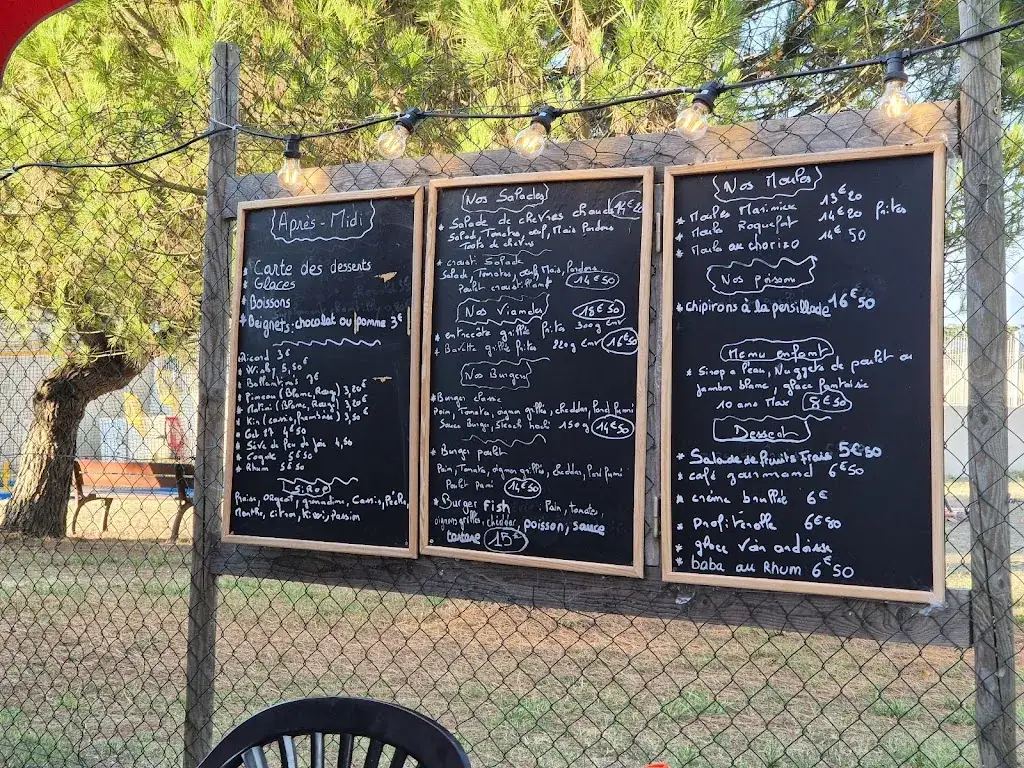 Après-Midi
* Carte des desserts
* Glaces
* Boissons
* Beignets: chocolat ou pomme 3€
Ricard 3€
* Wisky 5,50€
* Ballantines 7€
* Pineau (Blanc, Rosé) 3,20€
* Martini (Blanc, Rosé) 3,20€
* Kir (cassis, framboise) 3,50€
* Get 27 4€50
* Sève de feu de joie 4,50
* Cognac 5€50
* Rhum 5€50
Sirop
Fraise, Orgeat, grenadine, Cassis, Pêche,
Menthe, citron, Kiwi, passion
Nos Salades
* Salade de chèvres chauds 14€20
Salade, Tomates, oeuf, Mais Pondons
Toasts de chèvres
* crousti Salade
Salade, Tomates, oeuf, Mais, Pondons
Poulet croustillant 14€50
Nos Viandes
* entrecôte grillé frites 300g env 18€50
* Bavette grillé frites 220g env 16€50
Nos Burgeur
* Burger classic
Pain, Tomato, oignon grillés, cheddar, Pond fumé
Sauce Burger, Steack haché 150g 14€50
* Burger poulet
Pain, Tomato, oignon grillés, cheddar, Pond fumé
Poulet pané 14€50
* Burger Fish : Pain, tomates,
oignons grillés, cheddar, poisson, sauce
tartare 15€
Nos Moules
* Moules Marinière 13€20
* Moules Roquefort 14€20 frites
* Moules au chorizo 14€50
Nos poisson
* chipirons à la persillade 16€50
Menu enfant
* Sirop a l'eau, Nuggets de poulet ou
jambon blanc, glace fantaisie
10 ans Max 8€50
Dessert
* Salade de fruits Frais 5€50
* café gourmand 6€50
* crème brulée 6€
* profiterolle 6€80
* glace Voir ardoisse
* baba au Rhum 6€50